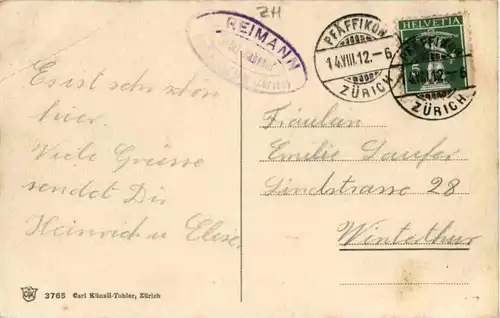 ZH
REIMANN
PFÄFFIKON
14.VIII.12.–6
ZÜRICH
HELVETIA
PFÄFFIKON
VIII.12.–6
ZÜRICH
Es ist sehr schön
hier.
Viele Grüsse
sendet Dir
Heinrich u Elise
Fräulein
Emilie Laufer
Lindstrasse 28
Winterthur
3765 Carl Künzli-Tobler, Zürich